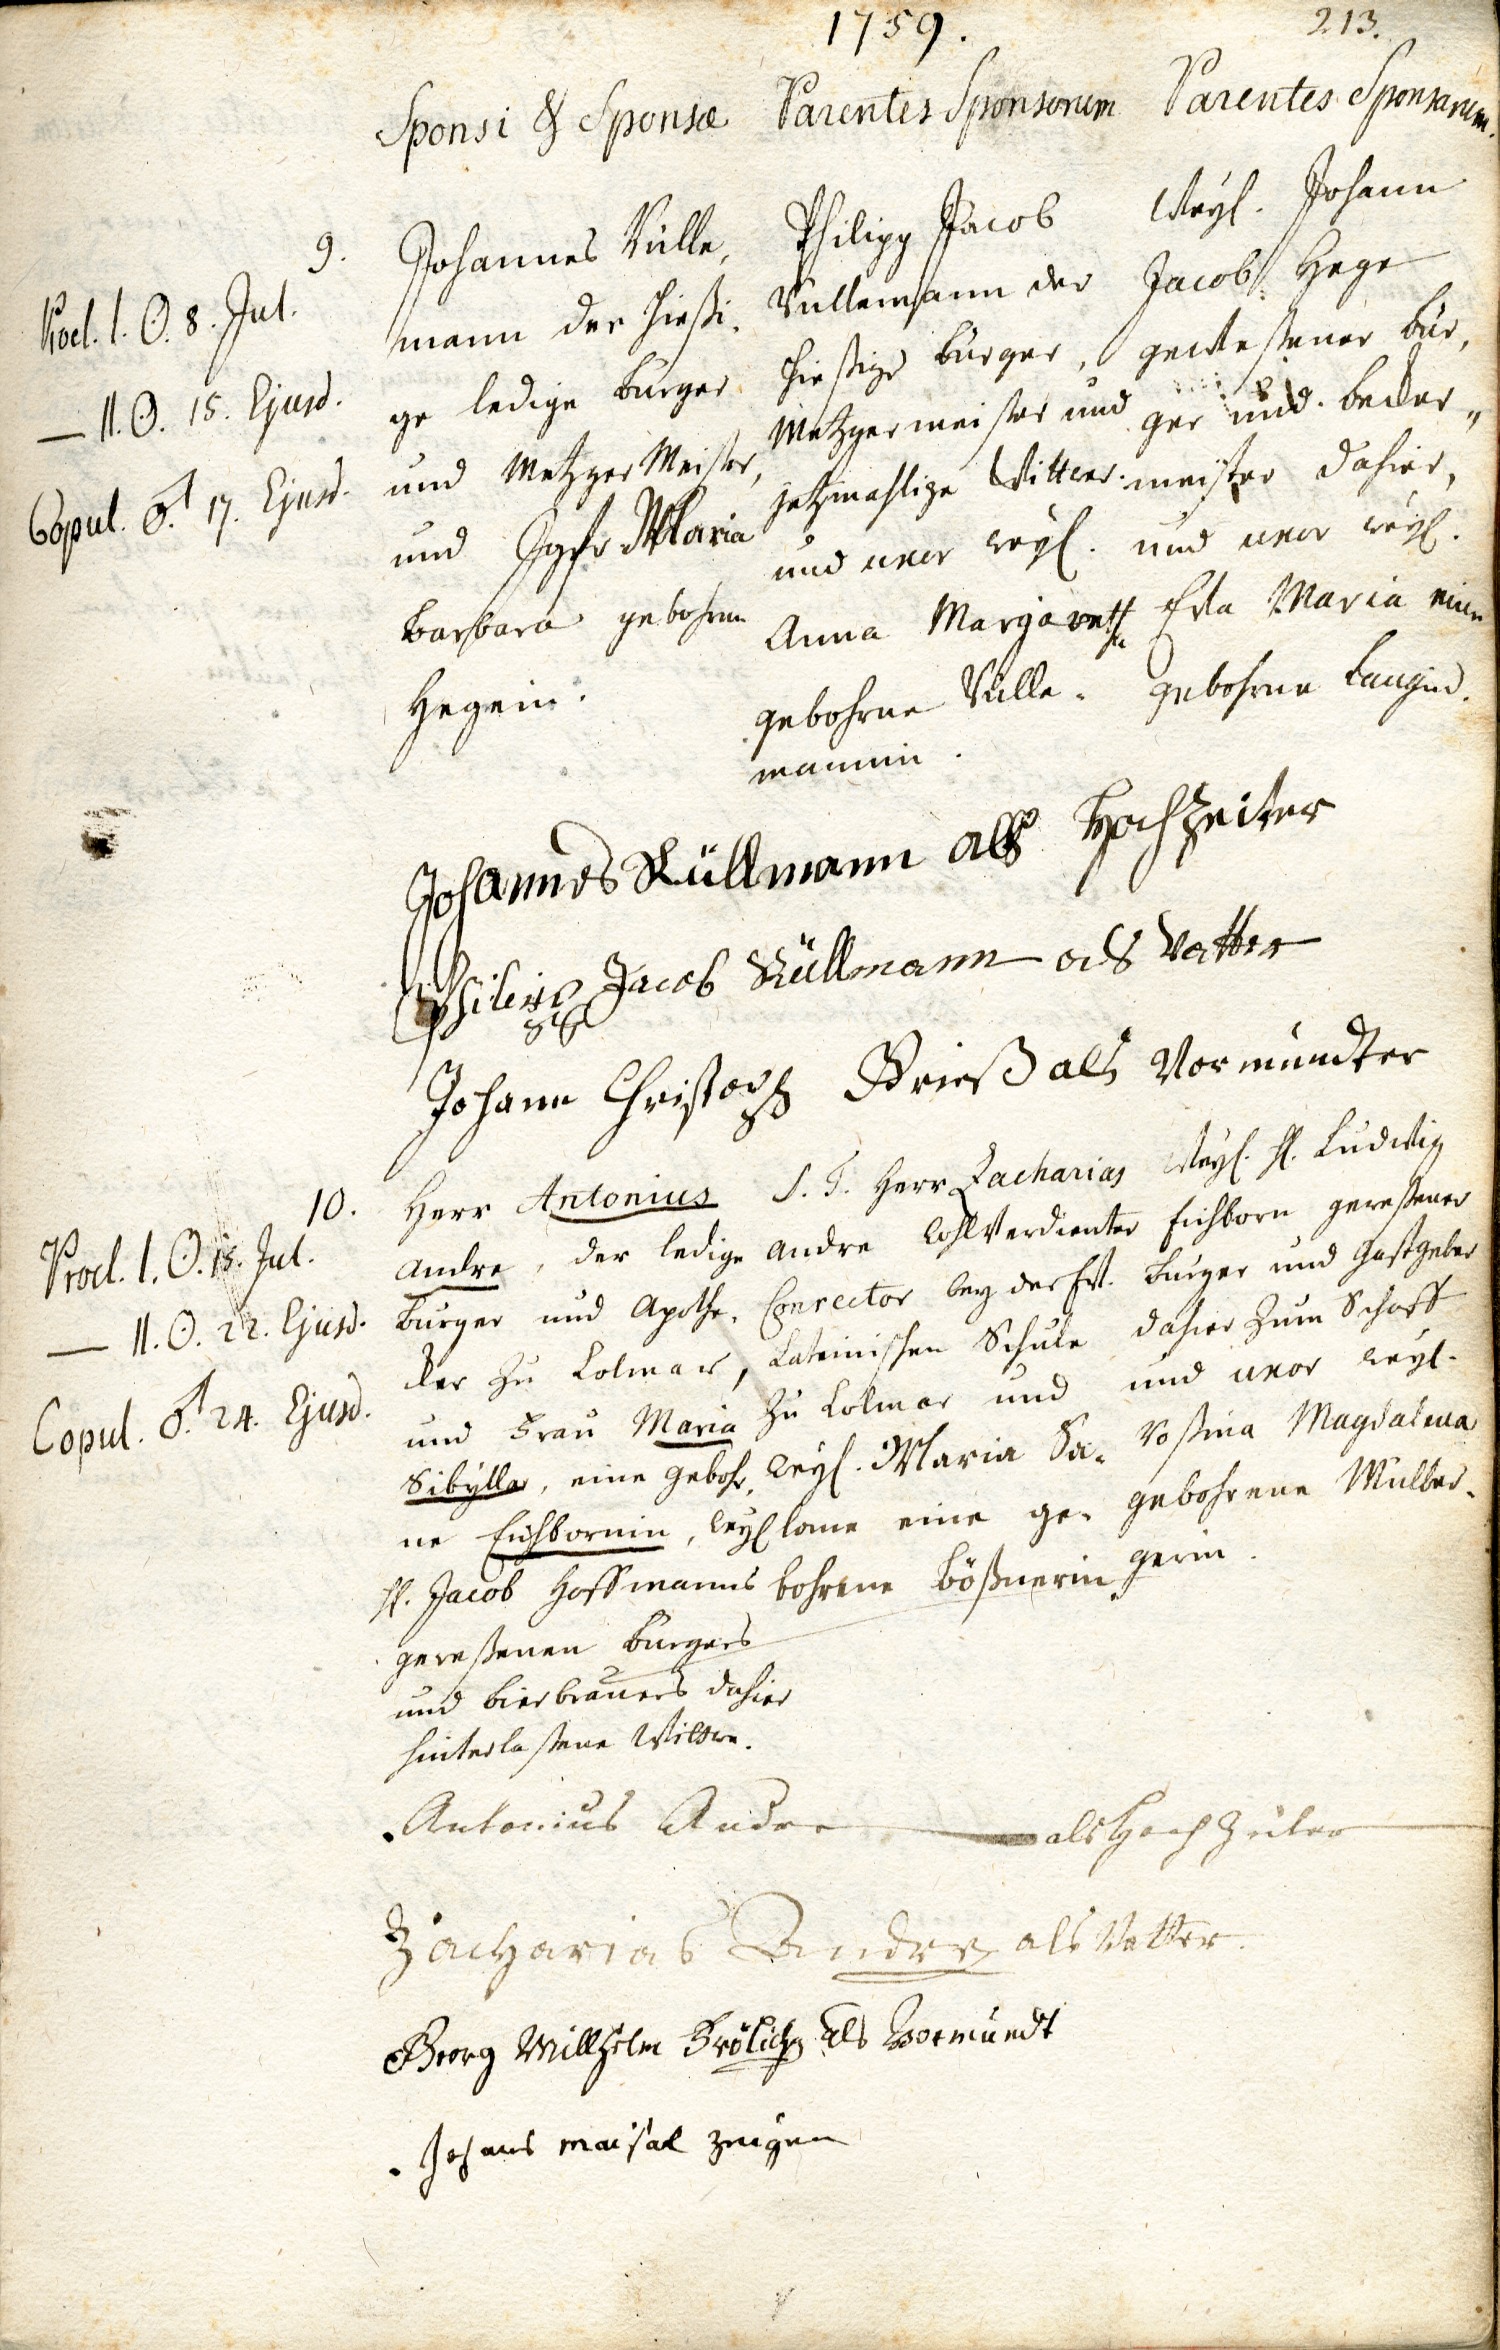 1759.
213.
Sponsi & Sponsæ
Parentes Sponsorum
Parentes Sponsarum.
9.
Procl. I. ☉. 8. Jul.
— II. ☉. 15. Ejusd.
Copul. ♂. 17. Ejusd.
Johannes Külle,
mann der hießi,
ge ledige Burger
und Metzger Meister,
und Jgfr Maria
Barbara gebohrne
Hegein.
Philipp Jacob
Küllemann der
hießige Burger,
Metzgermeister und
jetzmahlige Wittwer.
und uxor weyl.
Anna Margareth
gebohrne Külle-
mannin.
Weyl. Johann
Jacob Hege
geweßener Bur,
ger und Becker„
meister dahier,
und uxor weyl.
Eva Maria eine
gebohrne Langin.
Johannes Küllmann als Hochzeiter
Philipp Jacob Küllmann als Vatter
Johann Christoph Grieß als Vormundter
10.
Procl. I. ☉. 15. Jul.
— II. ☉. 22. Ejusd.
Copul. ♂. 24. Ejusd.
Herr Antonius
Andre, der ledige
Burger und Apothe-
cker zu Colmar,
und Frau Maria
Sibylla, eine gebohr,
ne Eichbornin, weyl
H. Jacob Hoffmanns
geweßenen Burgers
und Bierbrauers dahier
hinterlaßene Wittwe.
S. T. Herr Zacharias
Andre wohlverdienter
Conrector bey der Ev.
Lateinischen Schule
zu Colmar und
weyl. Maria Sa-
lome eine ge-
bohrene Bößnerin.
Weyl. H. Ludwig
Eichborn geweßener
Burger und Gastgeber
dahier zum Schaff
und uxor weyl.
Roßina Magdalena
gebohrene Mülber-
gerin.
Antonius Andre — als Hochzeiter
Zacharias Andre als Vatter.
Georg Willhelm Frölich als Vormundt
Johans zeugen